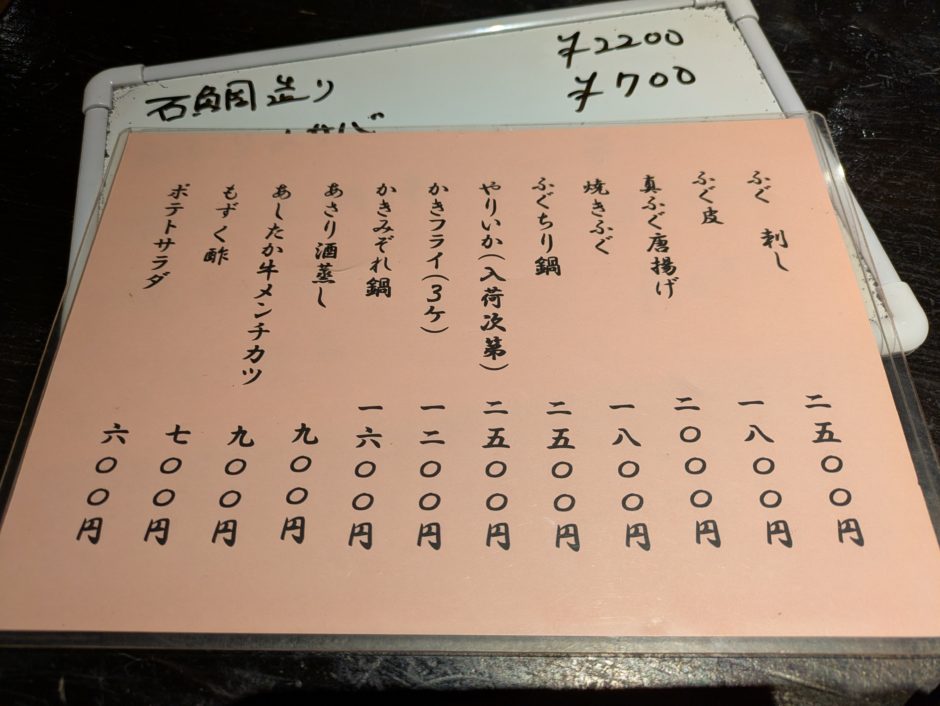 石鯛造り ¥2200
¥700
ふぐ刺し 二五〇〇円
ふぐ皮 一八〇〇円
真ふぐ唐揚げ 二〇〇〇円
焼きふぐ 一八〇〇円
ふぐちり鍋 二五〇〇円
やりいか(入荷次第) 二五〇〇円
かきフライ(3ケ) 一二〇〇円
かきみぞれ鍋 一六〇〇円
あさり酒蒸し 九〇〇円
あしたか牛メンチカツ 九〇〇円
もずく酢 七〇〇円
ポテトサラダ 六〇〇円